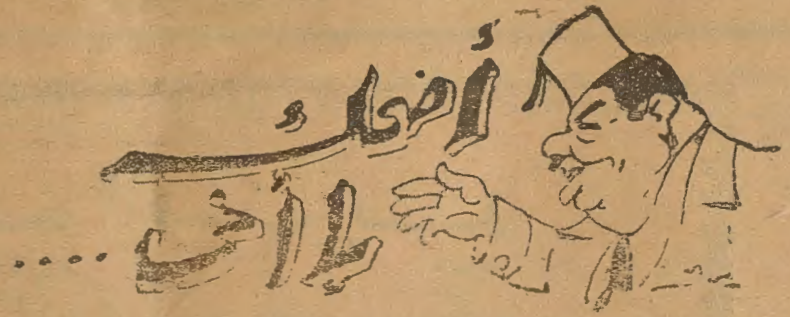 أضحك
يا أخى ....